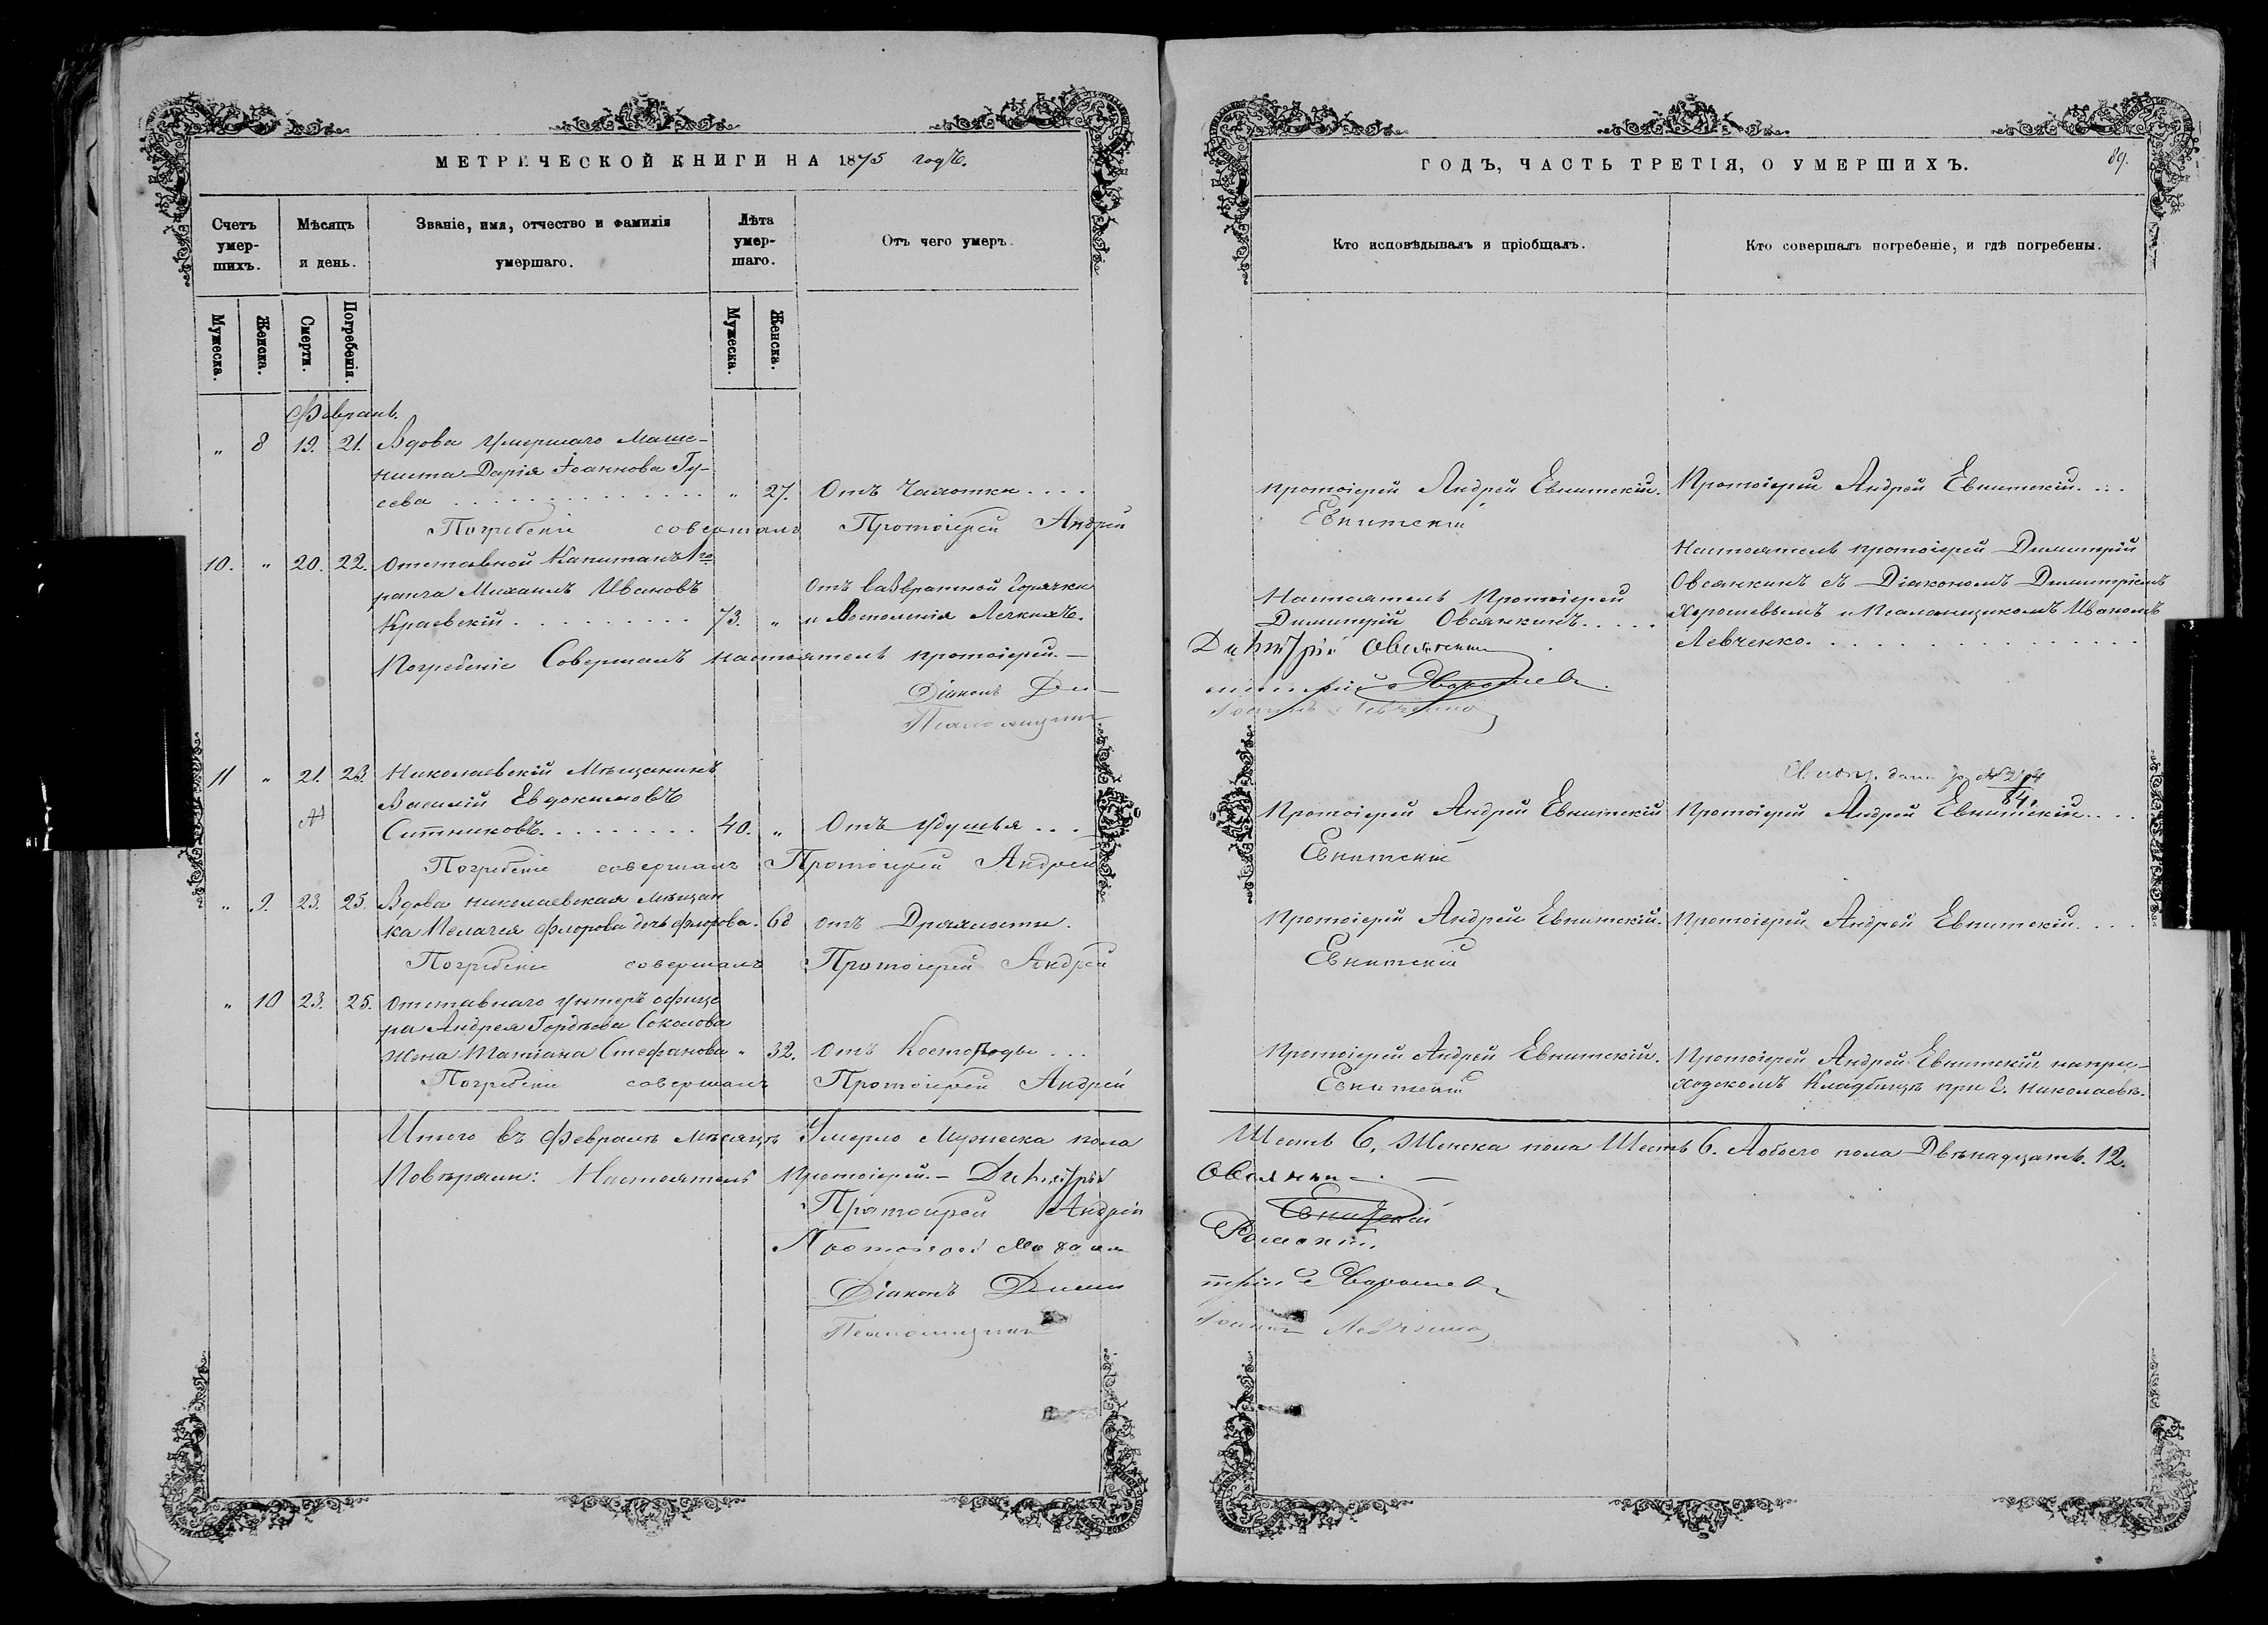 МЕТРИЧЕСКОЙ КНИГИ НА 1875 годъ.
Счетъ умер-шихъ.
Мѣсяцъ и день.
Званіе, имя, отчество и фамилія умершаго.
Лѣта умер-шаго.
Отъ чего умеръ.
Мужеска.
Женска.
Смерти.
Погребенія.
Мужеска.
Женска.
Февраль.
„ 8 19. 21. Вдова умершаго Маше-
ниста Дарія Іоаннова Гу-
сева . . . . „ 27. Отъ Чахотки . . . .
Погребеніе совершалъ Протоіерей Андрей
10. „ 20. 22. Отставной Капитанъ 1го
ранга Михаилъ Ивановъ
Краевскій . . . . 73. „
Отъ вазвратной Горячки
и Воспаленія Легкихъ.
Погребеніе Совершалъ настоятель протоіерей. —
Діаконъ Ди-
Псаломщикъ
11 „ 21. 23. Николаевскій Мѣщанинъ
Василій Евдокимовъ
Ситниковъ. . . . . 40. „ Отъ Удушья . . .
Погребеніе совершалъ Протоіерей Андрей
„ 9. 23. 25. Вдова николаевская мѣщан
ка Пелагея Флорова дочь Флорова. 68 отъ Дряхлости.
Погребеніе совершалъ Протоіерей Андрей
„ 10 23. 25. Отставнаго унтеръ офице
ра Андрея Гордѣева Соколова
жена Татіана Стефанова „ 32. Отъ Костоѣды . . .
Погребеніе совершалъ Протоіерей Андрей
Итого въ Февралѣ мѣсяцѣ Умерло Мужеска пола
Повѣряли: Настоятель протоіерей. — Димитрій
Протоіерей Андрей
Протоіерей Михаилъ
Діаконъ Дими
Псаломщикъ
ГОДЪ, ЧАСТЬ ТРЕТІЯ, О УМЕРШИХЪ.
89.
Кто исповѣдывалъ и пріобщалъ.
Кто совершалъ погребеніе, и гдѣ погребены.
Протоіерей Андрей Евнитскій. Протоіерей Андрей Евнитскій. . . .
Евнитскій
Настоятель Протоіерей
Димитрій Овсянкинъ. . . . .
Настоятель протоіерей Димитрій
Овсянкинъ съ Діакономъ Димитріемъ
Хорошевымъ и Псаломщикомъ Иваномъ
Левченко. . . . .
Димитрій Овсянкинъ
митрій Хорошевъ.
Іоаннъ Левченко
Свидѣт. дано за № 264
84.
Протоіерей Андрей Евнитскій Протоіерей Андрей Евнитскій. . . .
Евнитскій
Протоіерей Андрей Евнитскій. Протоіерей Андрей Евнитскій. . . .
Евнитскій
Протоіерей Андрей Евнитскій. Протоіерей Андрей Евнитскій на при-
ходскомъ Кладбищѣ при г. Николаевѣ.
Евнитскій
Шесть 6, Женска пола Шесть 6. А обоего пола Двѣнадцать. 12.
Овсянкинъ
Евнитскій
трій Хорошевъ
Іоаннъ Левченко